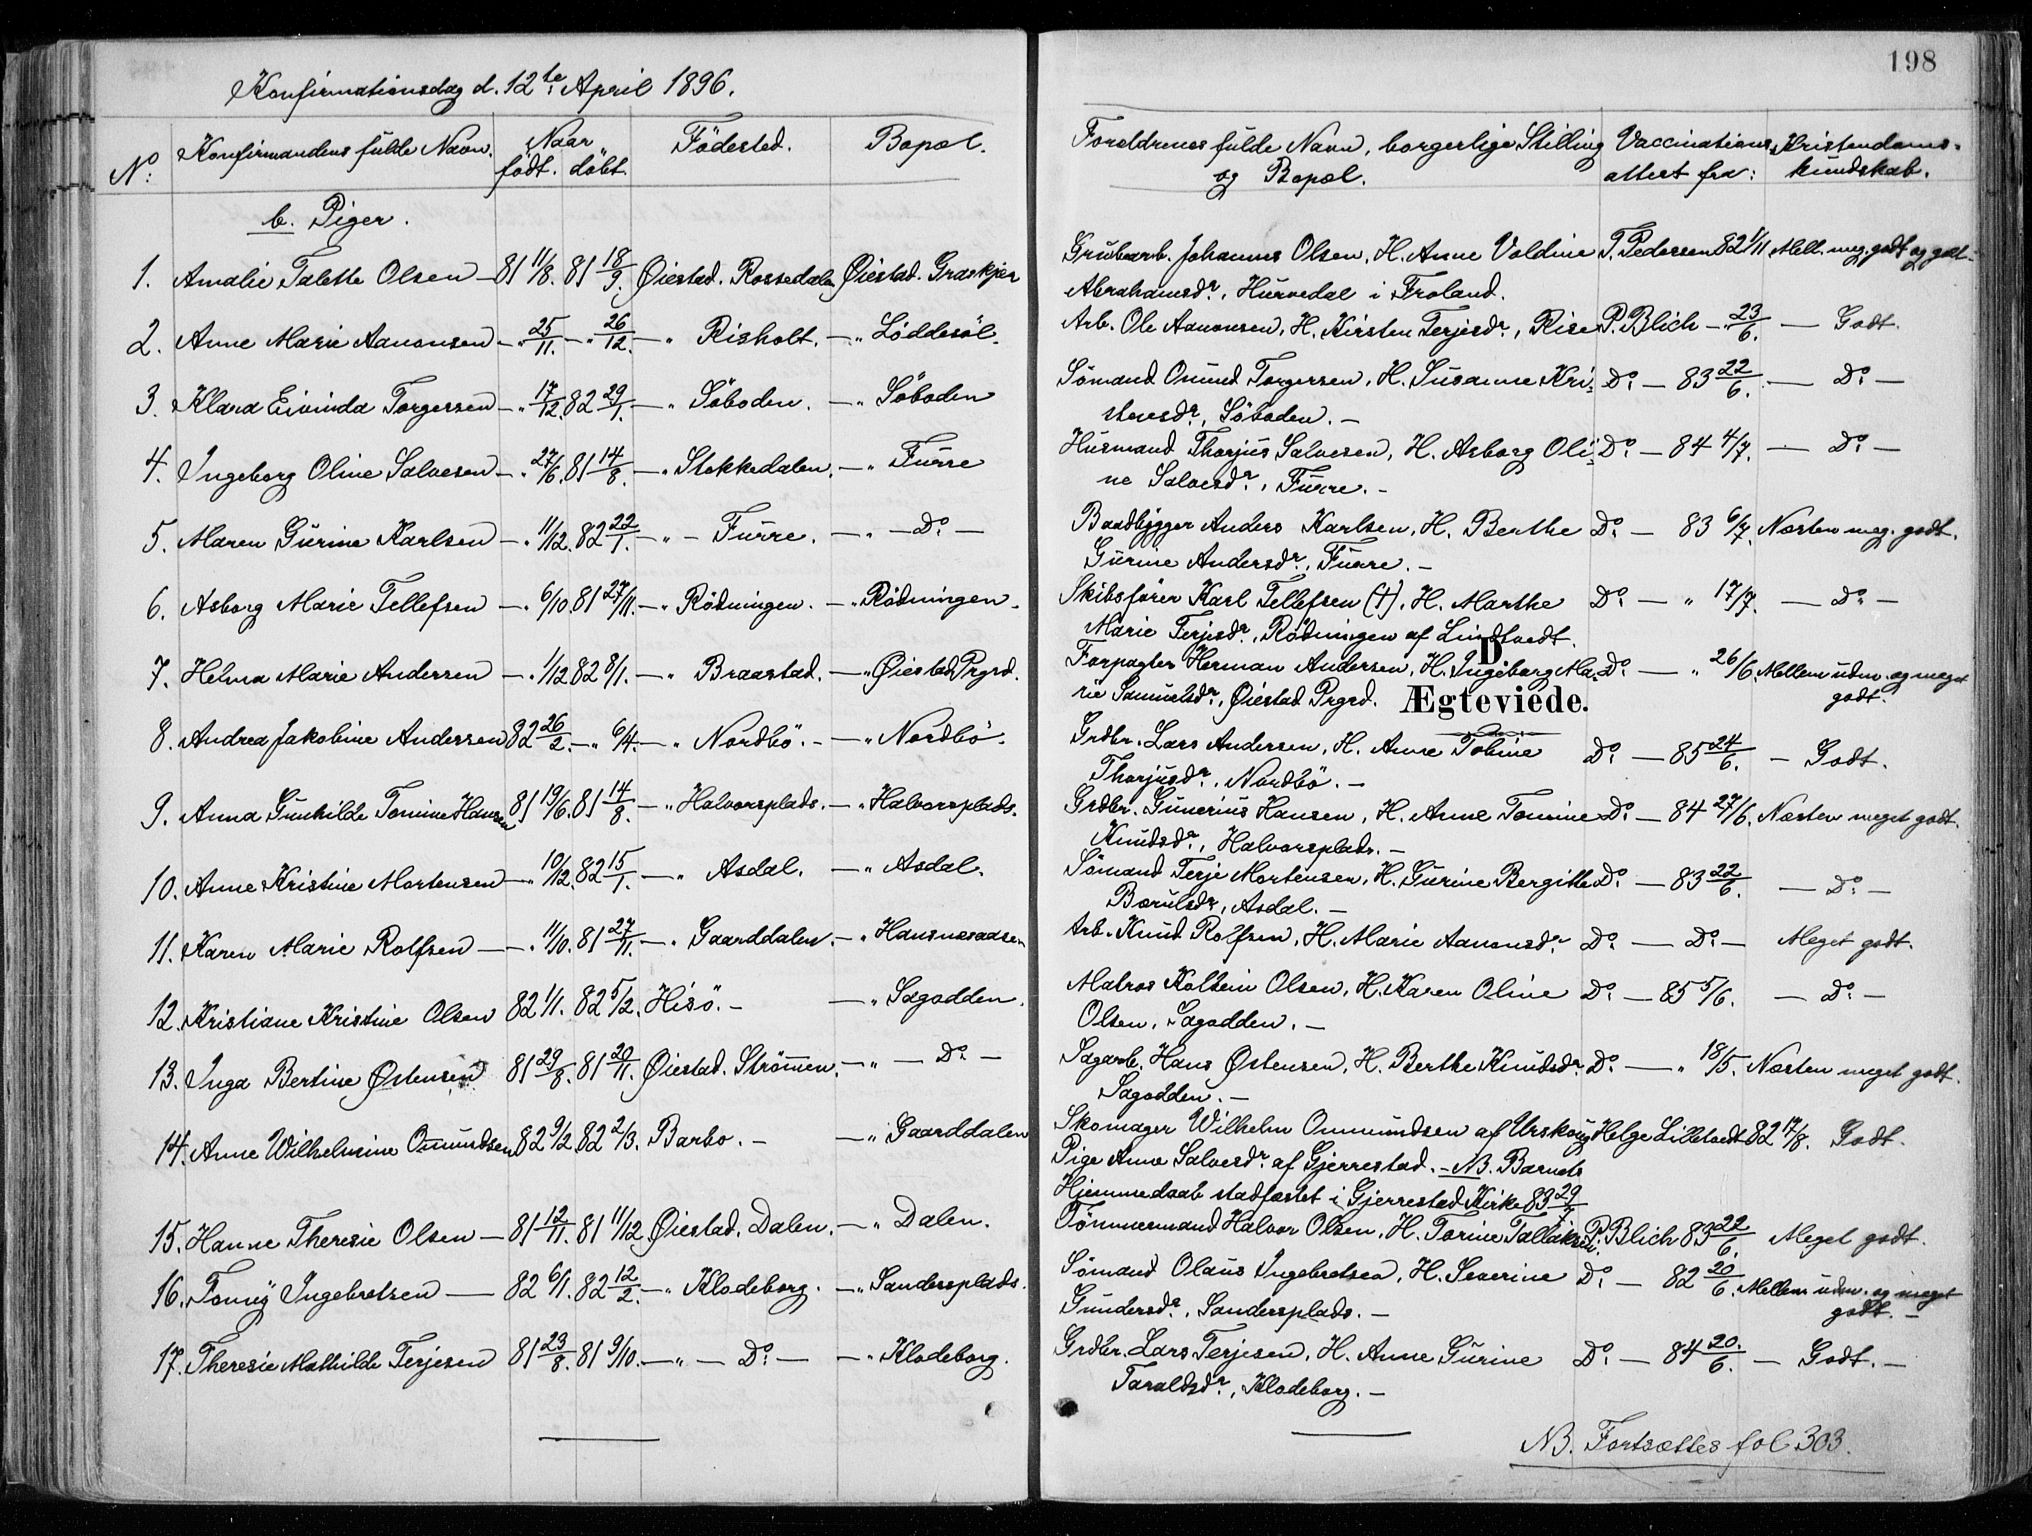 Konfirmationsdag d. 12te April 1896.
No: Konfirmandens fulde Navn. Naar født. döbt. Födested. Bopæl.
b. Piger.
1. Amalie Talette Olsen — 81 11/8. 81 18/9. Øiestad. Rossedalen Øiestad. Græskjær
2. Anne Marie Aanonsen — " 25/11. — " 26/12. — " Risholt. — " Løddesöl.
3. Klara Eivinda Torgersen — " 17/12. 82 29/1. — " Söboden. — " Söboden
4. Ingeborg Oline Salvesen — " 27/6. 81 14/8. — " Stokkedalen. — " Furre
5. Maren Gurine Karlsen — " 11/12. 82 22/1. — " — Furre. — " — Do: —
6. Asborg Marie Tellefsen — " 6/10. 81 27/11. — " Rödningen. — " Rödningen.
7. Helma Marie Andersen — " 1/12. 82 8/1. — " Braastad. — " Øiestad Prgrd.
8. Andrea Jakobine Andersen 82 26/2. — " 6/4. — " Nordbö. — " Nordbö.
9. Anna Gunhilde Tomine Hansen 81 19/6. 81 14/8. — " Halvorsplads. — " Halvorsplads.
10. Anne Kristine Mortensen — " 10/12. 82 15/1. — " Asdal. — " Asdal.
11. Karen Marie Rolfsen — " 11/10. 81 27/11. — " Gaarddalen. — " Hansnesaasen
12. Kristiane Kristine Olsen 82 1/1. 82 5/2. Hisö. — — " Sagodden.
13. Inga Bertine Østensen 81 29/8. 81 20/11. Øiestad. Strömmen. — " — Do: —
14. Anne Wilhelmine Omundsen 82 9/2. 82 2/3. Barbo. — — " Gaarddalen
15. Hanne Theresie Olsen — 81 12/11. 81 11/12. Øiestad. Dalen. — " Dalen.
16. Tomey Ingebretsen — 82 6/1. 82 12/2. — " Klodeborg. — " Sandersplads.
17. Theresie Mathilde Terjesen 81 23/8. 81 9/10. — " — Do: — — " Klodeborg.
198
Forældrenes fulde Navn, borgerlige Stilling Vaccinations Kristendoms-
og Bopæl. attest fra: kundskab.
Grubearb. Johannes Olsen, H. Anne Voldine T. Pedersen 82 1/11 Mell. meg. godt og godt.
Abrahamsdr., Hurvedal i Froland.
Arb. Ole Aanonsen, H. Kirsten Terjesdr., Rise P. Blich — " 23/6. — Godt.
Sömand Omund Torgersen, H. Susanne Kri- Do: — 83 22/6. — Do: —
stensdr., Söboden. —
Husmand Thorjus Salvesen, H. Asborg Oli- Do: — 84 4/7. — Do: —
ne Salvesdr., Furre. —
Baadbygger Anders Karlsen, H. Berthe Do: — 83 6/7. Næsten meg. godt.
Gurine Andersdr., Furre. —
Skibsfører Karl Tellefsen (†), H. Marthe Do: — " 17/7. — Do: —
Marie Terjesdr., Rödningen af Lindtvedt.
D
Forpagter Herman Andersen, H. Ingeborg Ma- Do: — " 26/6. Mellem udm. og meget
rie Samuelsdr., Øiestad Prgrd. godt.
Ægteviede.
Grdbr. Lars Andersen, H. Anne Tobine Do: — 85 24/6. — Godt.
Thorjusdr., Nordbö. —
Grdbr. Gunerius Hansen, H. Anne Tomine Do: — 84 27/6. Næsten meget godt.
Knudsdr., Halvorsplads. —
Sömand Terje Mortensen, H. Gurine Bergitte Do: — 83 22/6. — Do: —
Barulsdr., Asdal. —
Arb. Knud Rolfsen, H. Marie Aanonsdr. Do: — Do: — Meget godt.
Matros Kolbein Olsen, H. Karen Oline Do: — 85 5/6. — Do: —
Olsen, Sagodden. —
Sagarb. Hans Østensen, H. Berthe Knudsdr. Do: — " 18/5. Næsten meget godt.
Sagodden. —
Skomager Wilhelm Ommundsen af Urskoug Helge Lilletvedt 82 17/8. Godt.
Pige Anne Salvesdr. af Gjerrestad. — NB. Barnets
Hjemmedaab stadfæstet i Gjerrestad Kirke 83 29/7
Tömmermand Halvor Olsen, H. Torine Tallaksen. P. Blich 83 22/6. Meget godt.
Sömand Olaus Ingebretsen, H. Severine Do: — 82 20/6. Mellem udm. og meget
Gundersdr., Sandersplads. — godt. —
Grdbr. Lars Terjesen, H. Anne Gurine Do: — 84 20/6. — Godt. —
Taraldsdr., Klodeborg. —
NB. Fortsættes fol 303.